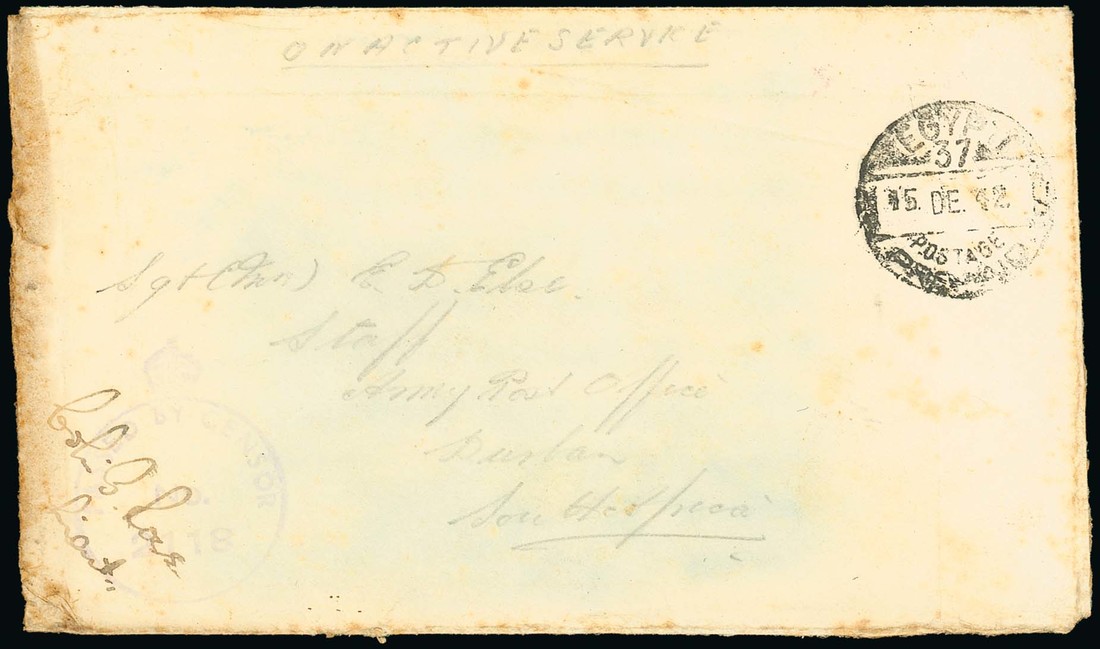 ON ACTIVE SERVICE
EGYPT
37
15 DE. 42
POSTAGE
PREPAID
Sgt E. D. Else.
Staff
Army Post Office
Durban
South Africa
BY CENSOR
NO.
2118